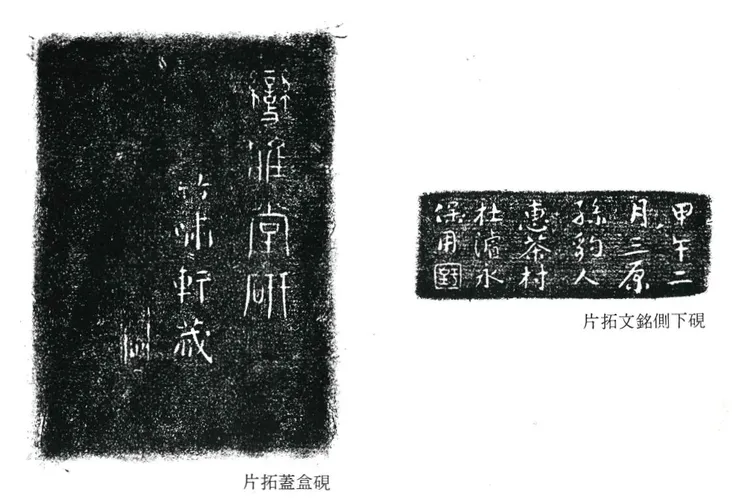 變雅堂研
竹味軒藏
硯盒蓋拓片
甲午二
月三原
孫豹人
惠茶村
杜濬永
保用
硯下側銘文拓片